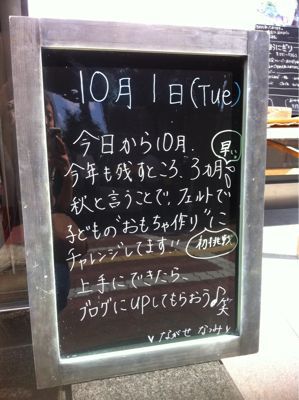 10月1日(Tue)
今日から10月.
今年も残すところ、3カ月
早い
秋と言うことで、フェルトで
子どもの"おもちゃ作り"に
チャレンジしてます!!
初挑戦
上手にできたら、
ブログにupしてもらおう♪笑
ながせ なつみ